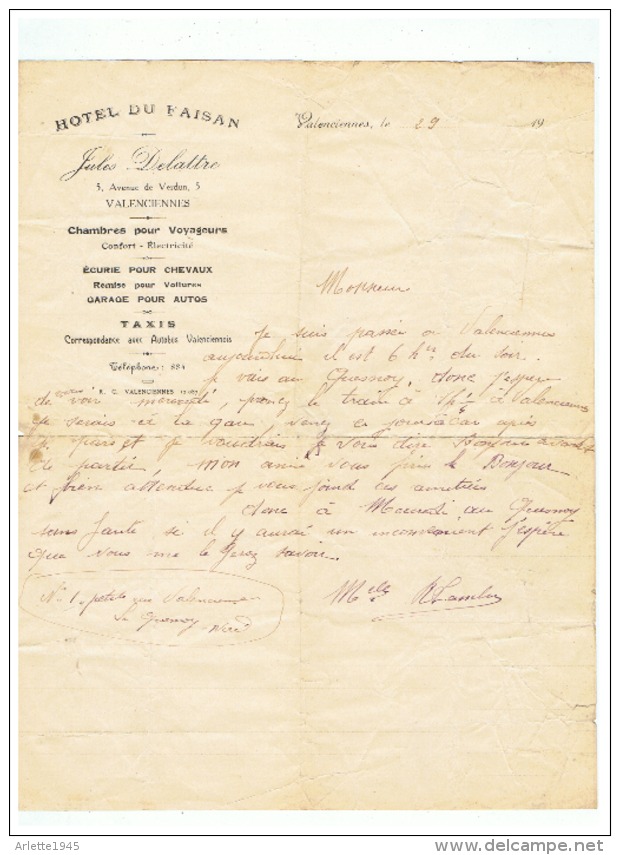 HOTEL DU FAISAN
Jules Delattre
5, Avenue de Verdun, 5
VALENCIENNES
Chambres pour Voyageurs
Confort - Électricité
ÉCURIE POUR CHEVAUX
Remise pour Voitures
GARAGE POUR AUTOS
TAXIS
Correspondance avec Autobus Valenciennois
Téléphone : 884
R. C. VALENCIENNES
Valenciennes, le 29 19
Monsieur
Je suis passée a Valenciennes
aujourd'hui il est 6 hres du soir.
Je vais au Quesnoy, donc j'espère
de vous voir mercredi, prenez le train à à Valenciennes
je serais et la gare, venez ce jour là car après
je pars et je voudrais vous dire Bonjour avant
de partir, mon amie vous joins le Bonjour
et bien attendue je vous joind ces amitiés
donc à Mercredi au Quesnoy
sans faute, si il y aurai un inconvenient j'espère
que vous me le ferez savoir.
Melle
No 1. petite rue Valenciennes
Le Quesnoy Nord
Arlette1945
delcampe.net